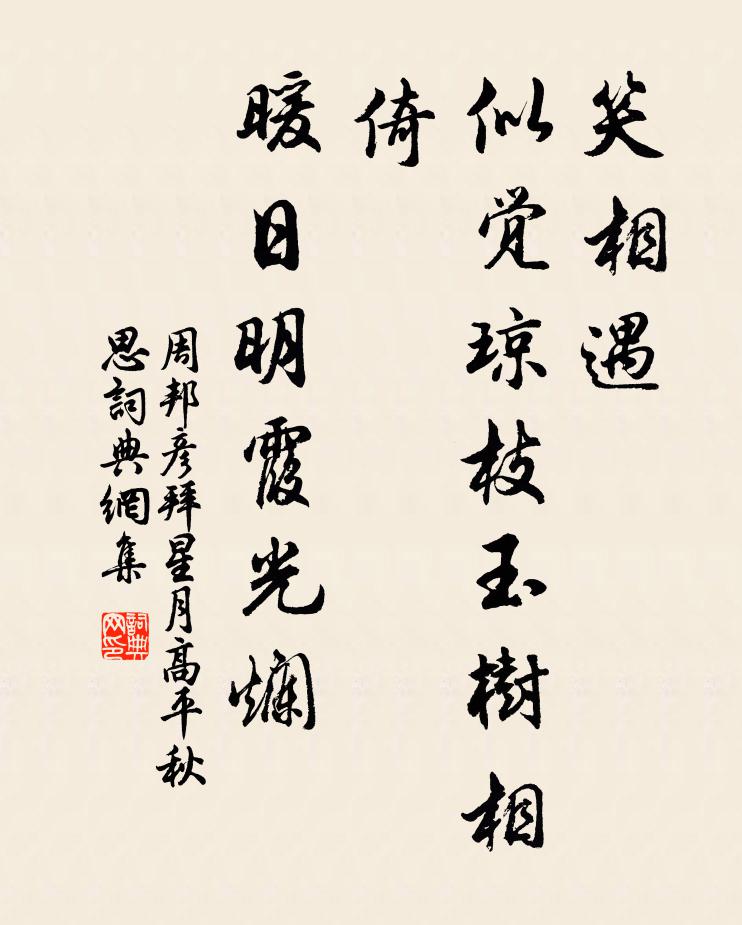 笑相遇
似觉琼枝玉樹相
倚
暖日明霞光爛
周邦彦拜星月高平秋
思詞典網集
詞典网印